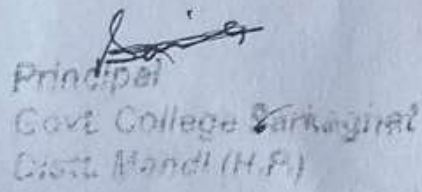 Principal
Govt College Sarkaghat
Distt. Mandi (H.P.)